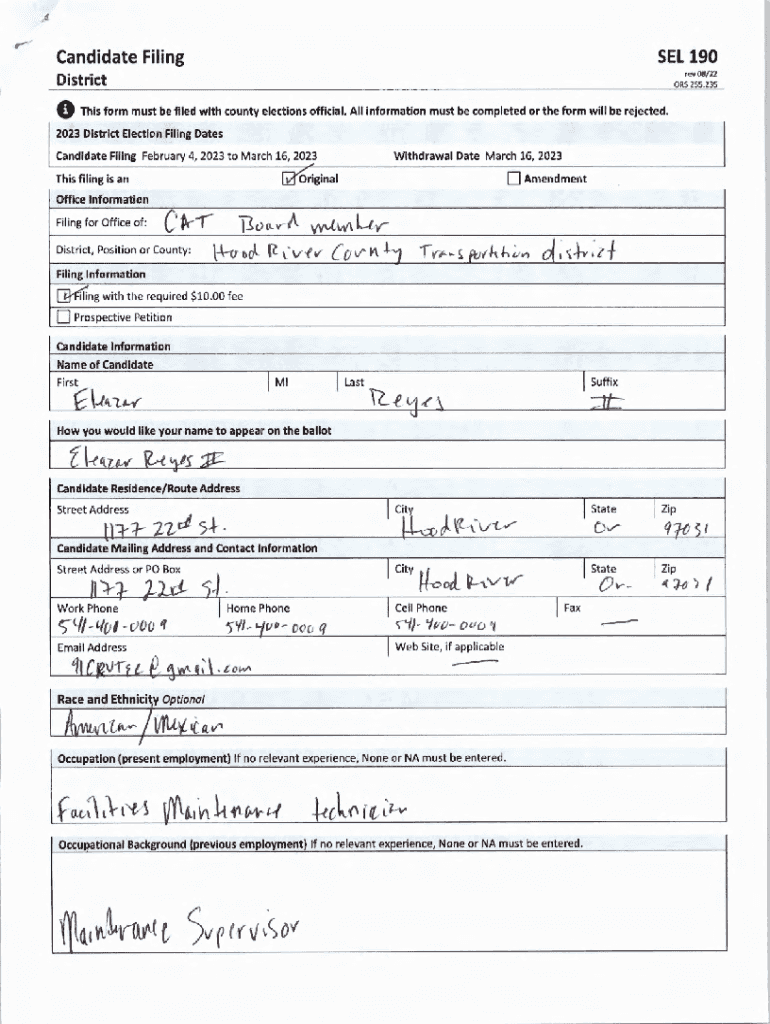 Candidate Filing
SEL 190
District
rev 08/22
ORS 255.235
i This form must be filed with county elections official. All information must be completed or the form will be rejected.
2023 District Election Filing Dates
Candidate Filing February 4, 2023 to March 16, 2023 Withdrawal Date March 16, 2023
This filing is an Original Amendment
Office Information
Filing for Office of: CAT Board member
District, Position or County: Hood River County Transportation district
Filing Information
Filing with the required $10.00 fee
Prospective Petition
Candidate Information
Name of Candidate
First MI Last Suffix
Eleazar Reyes II
How you would like your name to appear on the ballot
Eleazar Reyes II
Candidate Residence/Route Address
Street Address City State Zip
1177 22nd St. Hood River Or 97031
Candidate Mailing Address and Contact Information
Street Address or PO Box City State Zip
1177 22nd St. Hood River Or- 97031
Work Phone Home Phone Cell Phone Fax
541-400-0009 541-400-0009 541-400-0009
Email Address Web Site, if applicable
@gmail.com
Race and Ethnicity Optional
American/Mexican
Occupation (present employment) If no relevant experience, None or NA must be entered.
Facilities Maintenance technician
Occupational Background (previous employment) If no relevant experience, None or NA must be entered.
Maintenance Supervisor